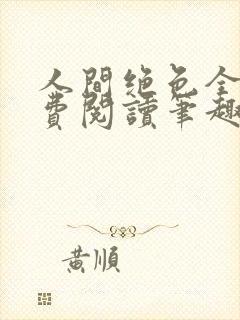 人間絶色全
費閱讀筆趣
黃順